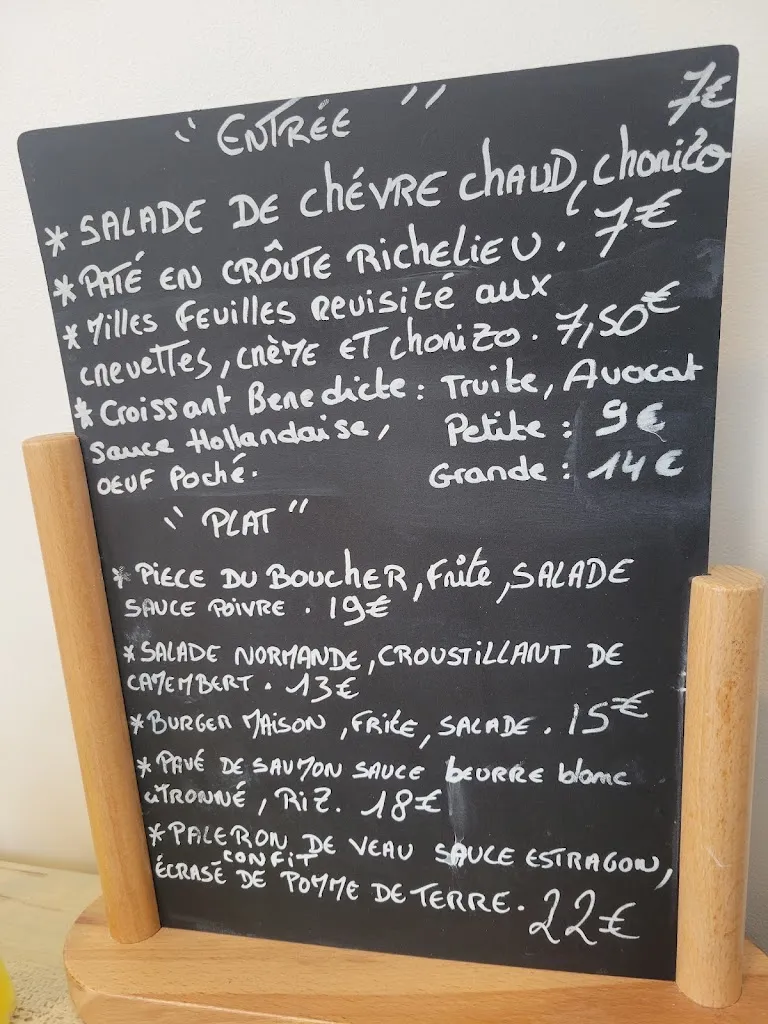 " ENTRÉE "
7€
* SALADE DE CHÉVRE CHAUD, Chorizo
* PATÉ EN CROÛTE RICHELIEU. 7€
* Milles Feuilles revisité aux
crevettes, crème ET chorizo. 7,50€
* Croissant Benedicte : Truite, Avocat
Sauce Hollandaise, Petite : 9€
OEUF Poché. Grande : 14€
" PLAT "
* PIECE DU BOUCHER, Frite, SALADE
SAUCE POIVRE. 19€
* SALADE NORMANDE, CROUSTILLANT DE
CAMEMBERT. 13€
* BURGER MAISON, FRITE, SALADE. 15€
* PAVÉ DE SAUMON SAUCE beurre blanc
CITRONNÉ, RIZ. 18€
* PALERON DE VEAU SAUCE ESTRAGON,
CONFIT
ÉCRASÉ DE POMME DE TERRE. 22€